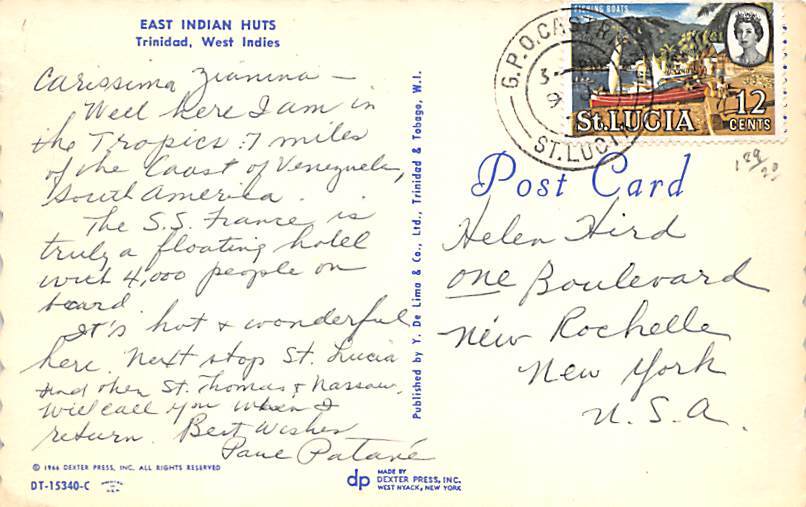 EAST INDIAN HUTS
Trinidad, West Indies
Carissima Zianina —
Well here I am in
the Tropics :7 miles
of the Coast of Venezuela,
South America.
The S.S. France is
truly a floating hotel
with 4,000 people on
board.
It's hot & wonderful
here. Next stop St. Lucia
and then St. Thomas & Nassau.
Will call you when I
return. Best Wishes
Patané
© 1966 DEXTER PRESS, INC. ALL RIGHTS RESERVED
DT-15340-C
Published by Y. De Lima & Co., Ltd., Trinidad & Tobago, W.I.
dp MADE BY
DEXTER PRESS, INC.
WEST NYACK, NEW YORK
G.P.O. CASTRI
ST. LUCIA
FISHING BOATS
St. LUCIA
12
CENTS
Post Card
Helen Hird
one Boulevard
New Rochelle
New York
U.S.A.